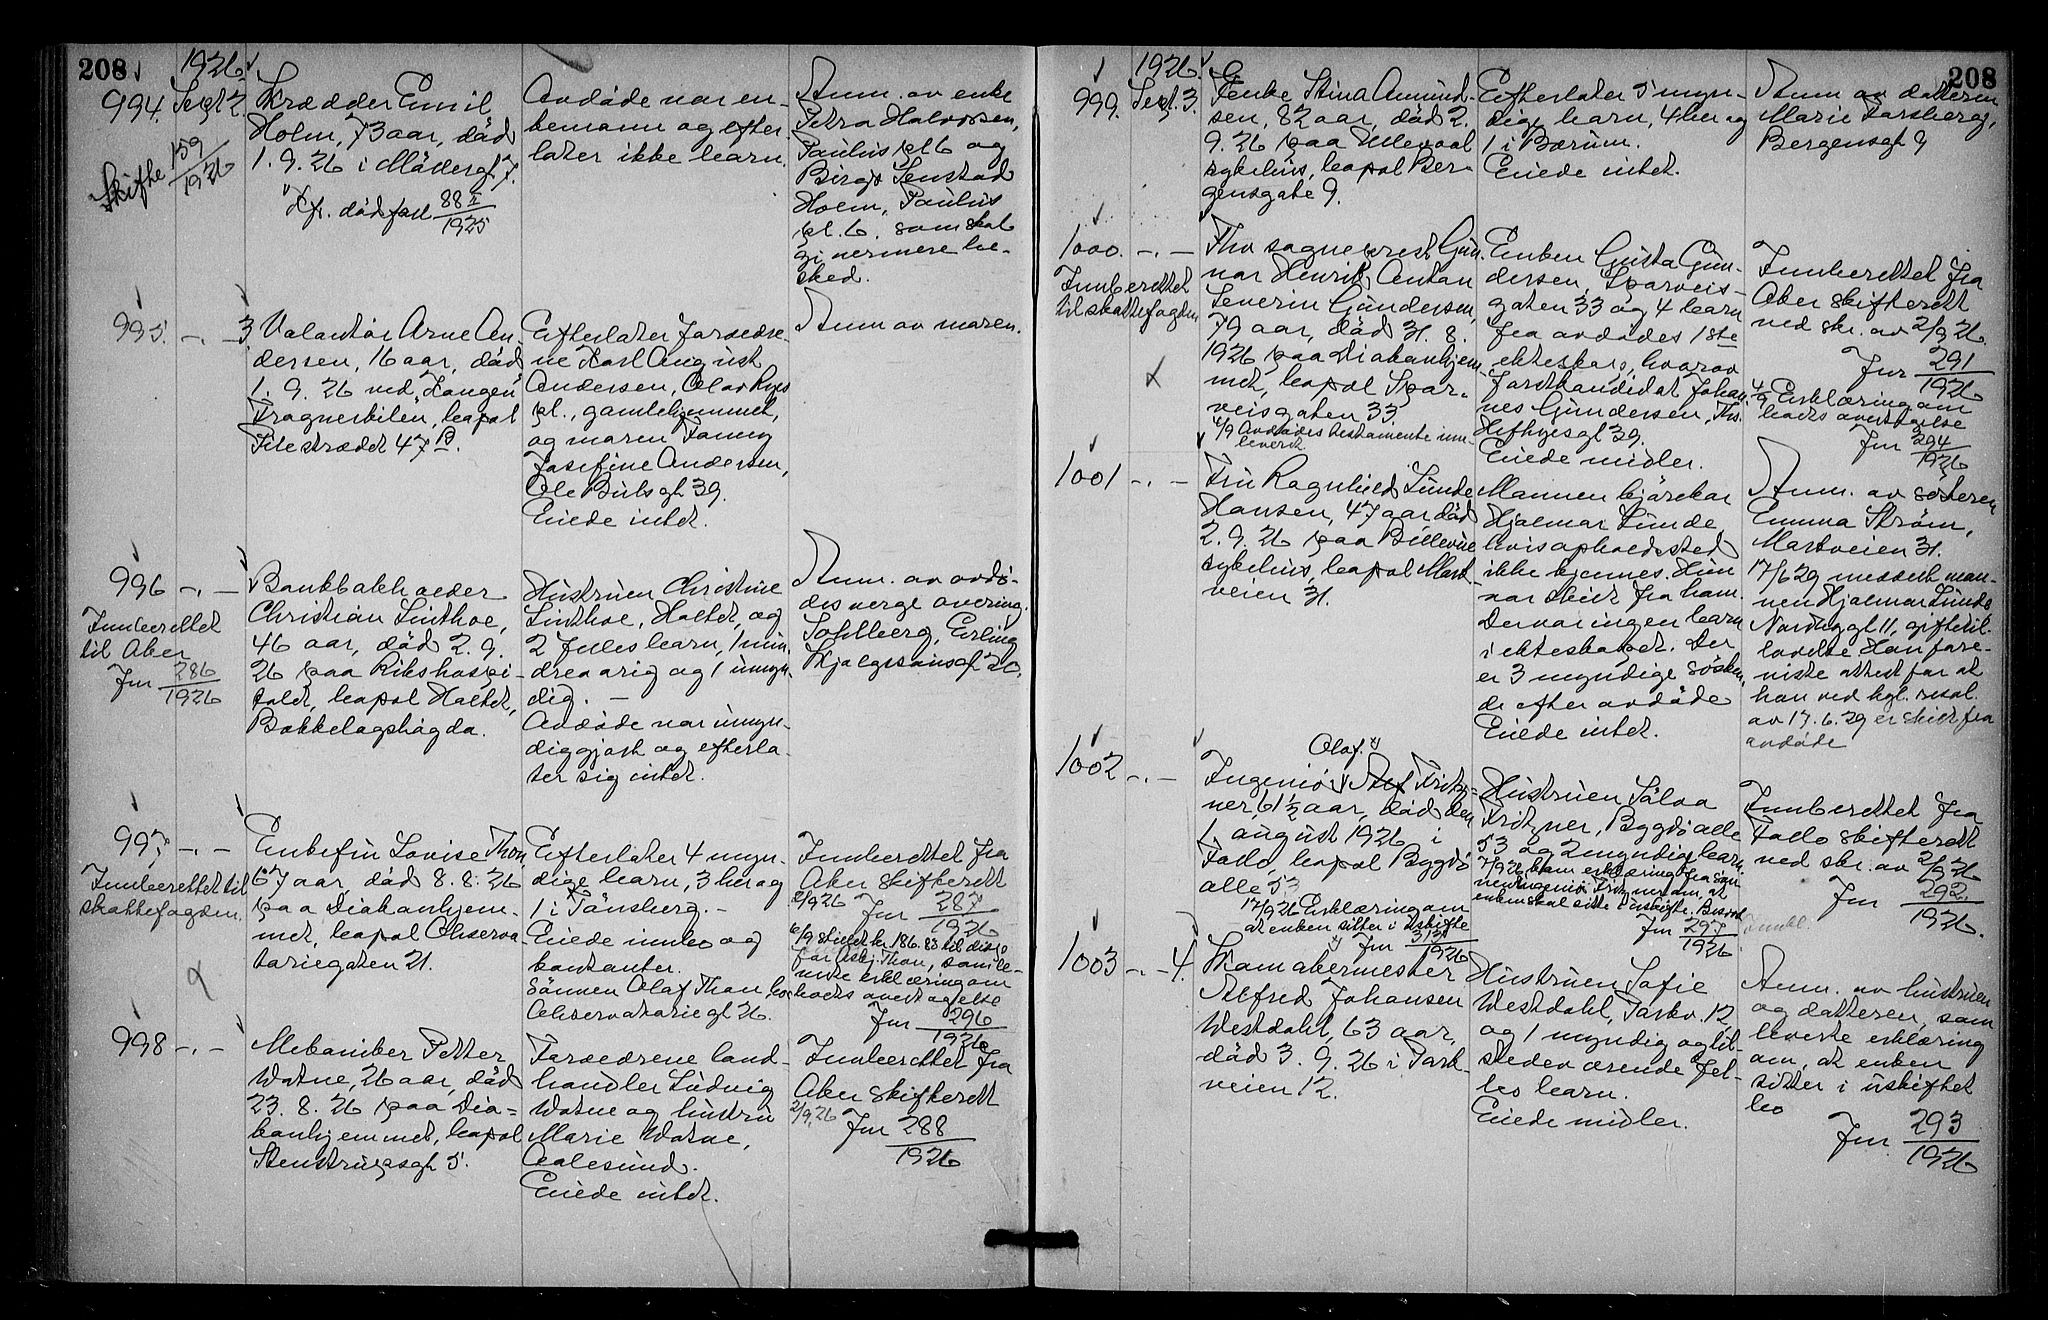 208
1926
994. Sept 2.
Skifte 159/1926
Skrædder Emil
Holm, 73 aar, död
1. 9. 26 i Möllergt 7.
Kfr. dödsfall 88 II/1925
Avdöde var en-
kemann og efter-
later ikke barn.
Anm. av enke
Petra Halvorsen,
Paulus pl. 6 og
Borgny Tenstad
Holm, Paulus
pl. 6. som skal
gi nermere be-
sked.
995. -.- 3
Volontör Arne An-
dersen, 16 aar, död
1. 9. 26 ved "Kongen"
Frognerkilen, bopæl
Pilestrædet 47 B.
Efterlater foreldre-
ne Karl August
Andersen, Olav Ryes
pl., gamlehjemmet,
og moren Fanny
Josefine Andersen,
Ole Bulsgt 39.
Eiede intet.
Anm av moren.
996 -.-
Innberettet
til Aker
Jnr 286/1926
Bankbokholder
Christian Linthoe,
46 aar, död 2. 9.
26 paa Rikshospi-
talet, bopæl Holtet,
Bekkelagshögda.
Hustruen Christine
Linthoe, Holtet, og
2 felles barn, 1 min-
dreaarig og 1 umyn-
dig. -
Avdöde var umyn-
diggjort og efterla-
ter sig intet.
Anm. av avdö-
des verge overing.
Sohlberg, Erling
Skjalgsönsgt 20.
997 -.-
Innberettet til
skattefogden.
Enkefru Lovise Thon,
67 aar, död 8. 8. 26
paa Diakonhjem-
met, bopæl Observa-
toriegaten 21.
Efterlater 4 myn-
dige barn, 3 her og
1 i Tönsberg. -
Eiede innbo og
kontanter.
Sönnen Olaf Thon, bor
Observatoriegt 26.
Innberettet fra
Aker skifterett
2/9 26 Jnr 287/1926
6/9 stillet kr. 186.83 til disp.
for Asbj. Thon, som le-
verte erklæring om
boets overtagelse
Jnr 296/1926
998 -.-
Mekaniker Petter
Watne, 26 aar, död
23. 8. 26 paa Dia-
konhjemmet, bopæl
Stenstrupsgt 5.
Foreldrene land-
handler Ludvig
Watne og hustru
Marie Watne,
Aalesund.
Eiede intet.
Innberettet fra
Aker skifterett
2/9. 26
Jnr 288/1926
208
1926.
999. Sept. 3.
Enke Stina Amund-
sen, 82 aar, död 2.
9. 26 paa Ullevaal
sykehus, bopæl Ber-
gensgate 9.
Efterlater 5 myn-
dige barn, 4 her og
1 i Bærum.
Eiede intet.
Anm av datteren
Marie Forsberg,
Bergensgt 9
1000. -.-
Innberettet
til skattefogden
Fhv sogneprest Gun-
nar Henrik Anton
Severin Gundersen,
79 aar, död 31. 8.
1926 paa Diakonhjem-
met, bopæl Spor-
veisgaten 33
4/9 Avdödes testamente inn-
levert
Enken Gusta Gun-
dersen, Sporveis-
gaten 33 og 4 barn
fra avdödes 1ste
ekteskap, hvorav
forstkandidat Johan-
nes Gundersen, Ths.
Heftyesgt 39.
Eiede midler.
Innberettet fra
Aker skifterett
ved skr. av 2/9 26.
Jnr 291/1926
4/9 Erklæring om
boets overtagelse
Jnr 294/1926
1001 -.-
Fru Ragnhild Lunde
Hansen, 47 aar död
2. 9. 26 paa Bellevue
sykehus, bopæl Mark-
veien 31.
Mannen kjörekar
Hjalmar Lunde,
hvis opholdssted
ikke kjennes. Hun
var skilt fra ham.
Der var ingen barn
i ekteskapet. Der
er 3 myndige sösken-
de efter avdöde
Eiede intet.
Anm. av sösteren
Emma Ström,
Markveien 31.
17/6 29 meddelt man-
nen Hjalmar Lunde
Nordbygt 11, giftetil-
ladelse. Han fore-
viste attest for at
han ved kgl. resol.
av 17. 6. 29 er skilt fra
avdöde
1002 -.-
Olaf
Ingeniör Alf Fritz-
ner, 61 1/2 aar, död den
1. august 1926 i
Follo, bopæl Bygdö
alle 53
17/9 26 Erklæring om
at enken sitter i uskifte
Jnr 313/1926
Hustruen Sålva
Fritzner, Bygdö alle
53 og 2 myndige barn.
7/9 26 kom erklæring fra søn-
nen ingeniör Fritzner om, at
enken skal sitte i uskifte. Besvart
Jnr 297/1926
Innberettet fra
Follo skifterett
ved skr. av 2/9 26
Jnr 292/1926.
1003 -.- 4.
Skomakermester
Alfred Johansen
Westdahl, 63 aar,
död 3. 9. 26 i Park-
veien 12.
Hustruen Sofie
Westdahl, Parkv. 12,
og 1 myndig og til-
stedeværende fel-
les barn.
Eiede midler.
Anm. av hustruen
og datteren, som
leverte erklæring
om, at enken
sitter i uskiftet
bo
Jnr. 293/1926